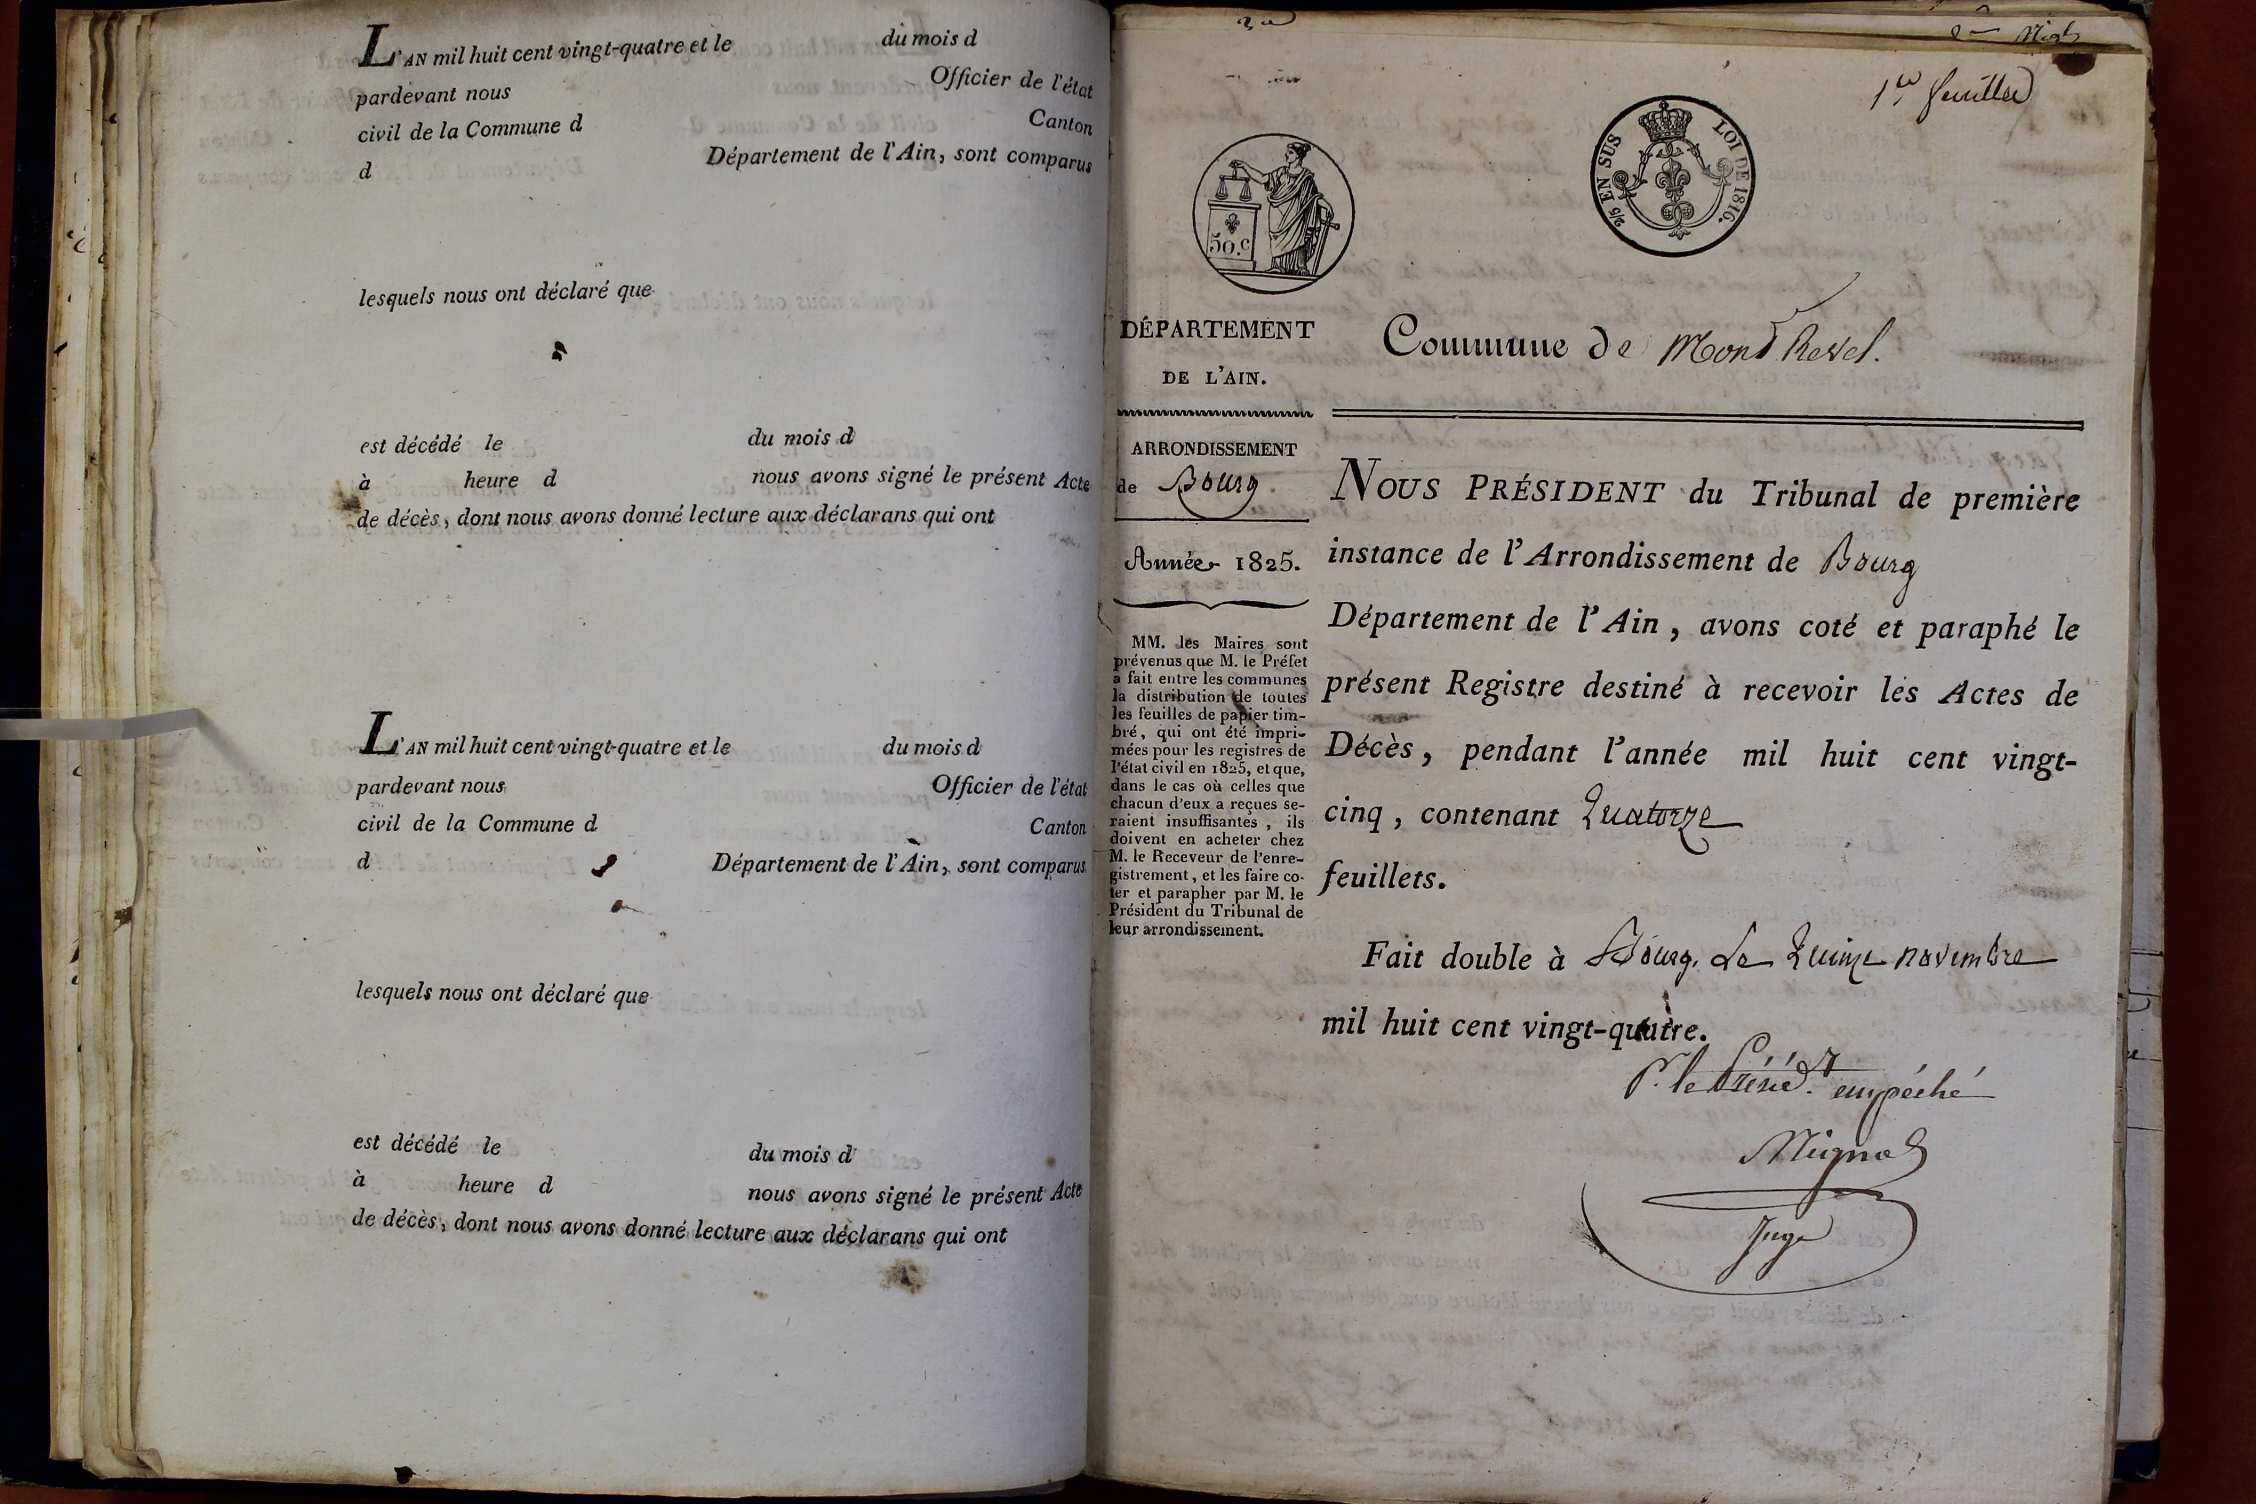 L'AN mil huit cent vingt-quatre et le du mois d
pardevant nous Officier de l'état
civil de la Commune d Canton
d Département de l'Ain, sont comparus
lesquels nous ont déclaré que
est décédé le du mois d
à heure d nous avons signé le présent Acte
de décès, dont nous avons donné lecture aux déclarans qui ont
L'AN mil huit cent vingt-quatre et le du mois d
pardevant nous Officier de l'état
civil de la Commune d Canton
d Département de l'Ain, sont comparus
lesquels nous ont déclaré que
est décédé le du mois d
à heure d nous avons signé le présent Acte
de décès, dont nous avons donné lecture aux déclarans qui ont
1er feuillet
50.c
2/5 EN SUS LOI DE 1816.
DÉPARTEMENT
DE L'AIN.
ARRONDISSEMENT
de Bourg
Année 1825.
MM. les Maires sont
prévenus que M. le Préfet
a fait entre les communes
la distribution de toutes
les feuilles de papier tim-
bré, qui ont été impri-
mées pour les registres de
l'état civil en 1825, et que,
dans le cas où celles que
chacun d'eux a reçues se-
raient insuffisantes, ils
doivent en acheter chez
M. le Receveur de l'enre-
gistrement, et les faire co-
ter et parapher par M. le
Président du Tribunal de
leur arrondissement.
Commune de Mont Revel.
NOUS PRÉSIDENT du Tribunal de première
instance de l'Arrondissement de Bourg
Département de l'Ain, avons coté et paraphé le
présent Registre destiné à recevoir les Actes de
Décès, pendant l'année mil huit cent vingt-
cinq, contenant Quatorze
feuillets.
Fait double à Bourg. Le Quinze novembre
mil huit cent vingt-quatre.
Pr. le Présidt. empêché
Juge